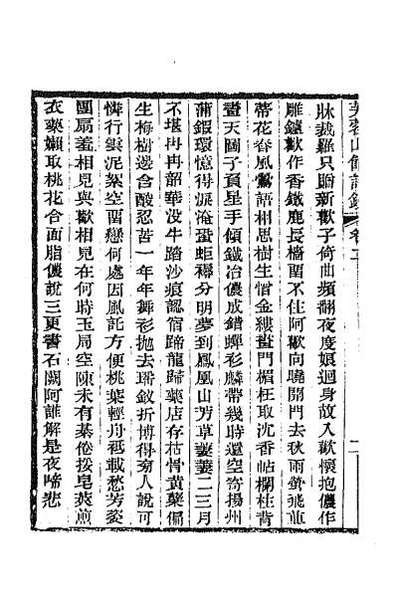 芙蓉山館詩鈔 卷二 二
牀裁雞只賭新歡子倚曲頻翻夜度娘迴身故入歡懷抱儂作
雕鑪歡作香鐵鹿長檣留不住阿歡向曉開門去秋雨螢飛並
蒂花春風鶯語相思樹生憎金縷畫門楣枉取沈香帖欄柱背
畫天圖子負星手傾鐵冶儂成錯蟬衫麟帶幾時還空寄揚州
蒲鍜環憶得淚淹蛩蚷襟分明夢到鳳凰山芳草萋萋二三月
不堪冉冉韶華沒牛踏沙痕認宿蹄龍歸藥店存枯骨黃蘗偏
生梅樹邊含酸忍苦一年年舞衫拋去瑇釵折博得旁人說可
憐行雲泥絮空留戀何處因風託方便桃葉輕舟柢載愁芳姿
團扇羞相見與歡相見在何時玉局空陳未有棊倦挼皂莢煎
衣藥嬾取桃花合面脂儂說三更書石闕阿誰解是夜啼悲